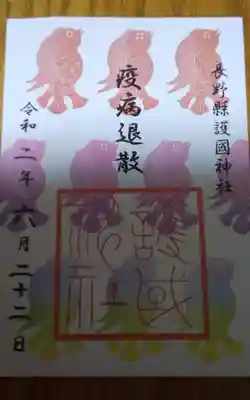 長野縣護國神社
疫病退散
令和二年六月二十二日